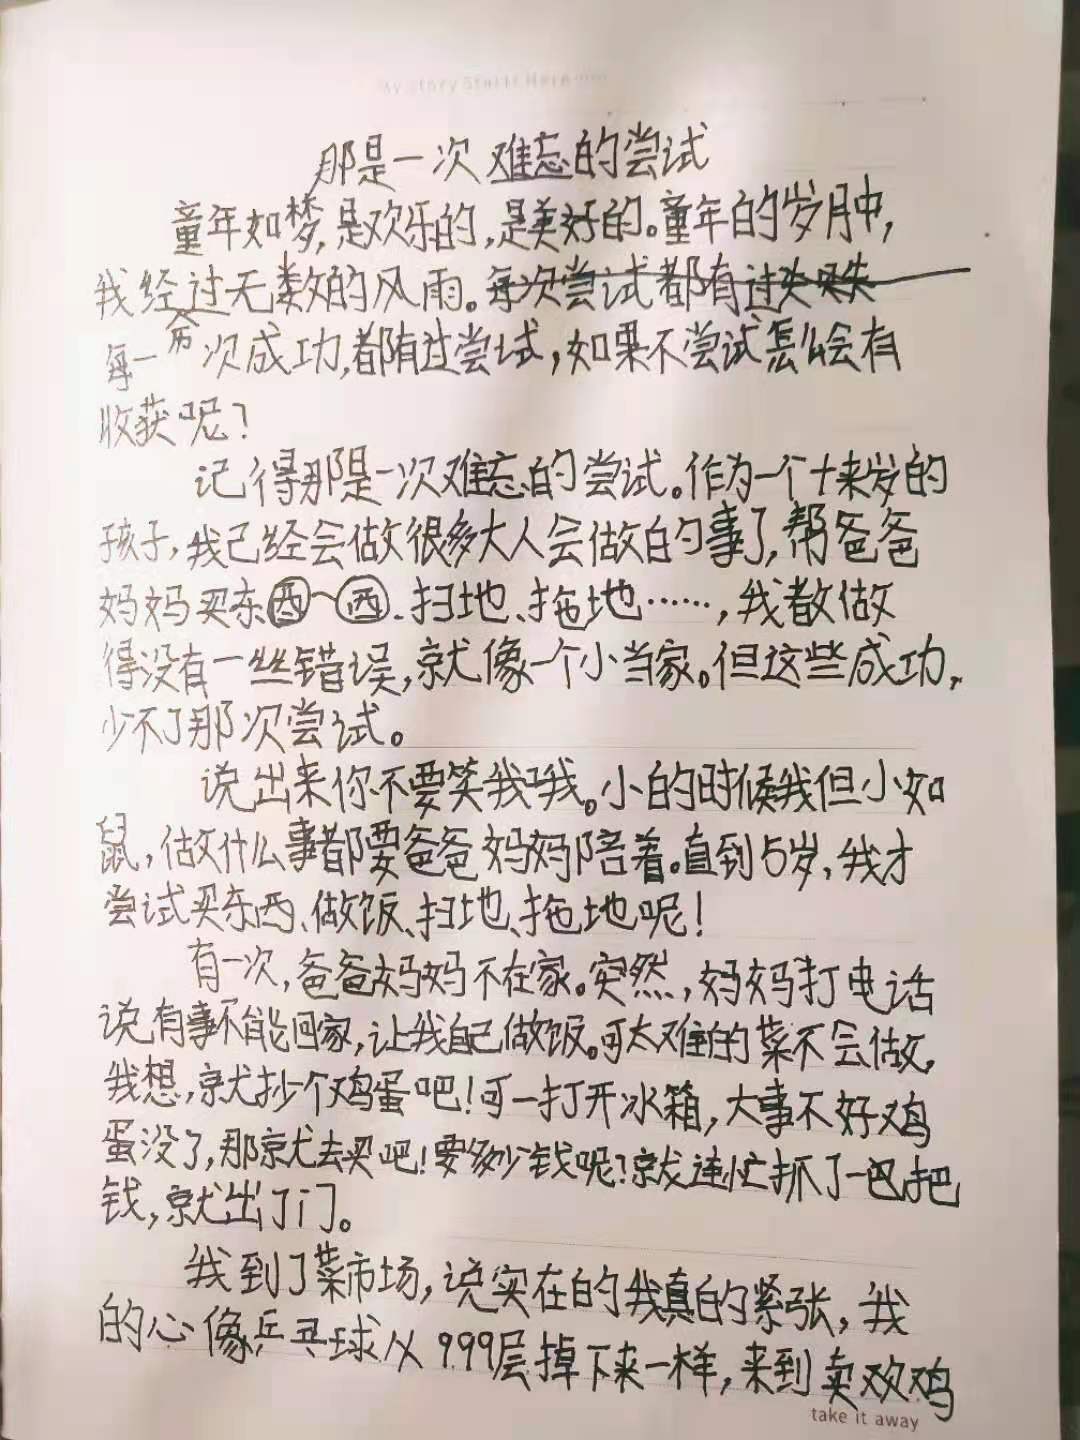 My Story Starts Here
那是一次难忘的尝试
童年如梦,是欢乐的,是美好的。童年的岁月中,
我经过无数的风雨。每次尝试都有过失
每一次成功,都有过尝试,如果不尝试怎么会有
收获呢?
记得那是一次难忘的尝试。作为一个十来岁的
孩子,我已经会做很多大人会做的事了,帮爸爸
妈妈买东西、扫地、拖地……,我都做
得没有一丝错误,就像一个小当家。但这些成功,
少不了那次尝试。
说出来你不要笑我哦。小的时候我但小如
鼠,做什么事都要爸爸妈妈陪着。直到5岁,我才
尝试买东西、做饭、扫地、拖地呢!
有一次,爸爸妈妈不在家。突然,妈妈打电话
说有事不能回家,让我自己做饭。可太难的菜不会做,
我想,就抄个鸡蛋吧!可一打开冰箱,大事不好鸡
蛋没了,那就去买吧!要多少钱呢?就连忙抓了一把
钱,就出了门。
我到了菜市场,说实在的我真的紧张,我
的心像乒乓球从999层掉下来一样,来到卖鸡
take it away